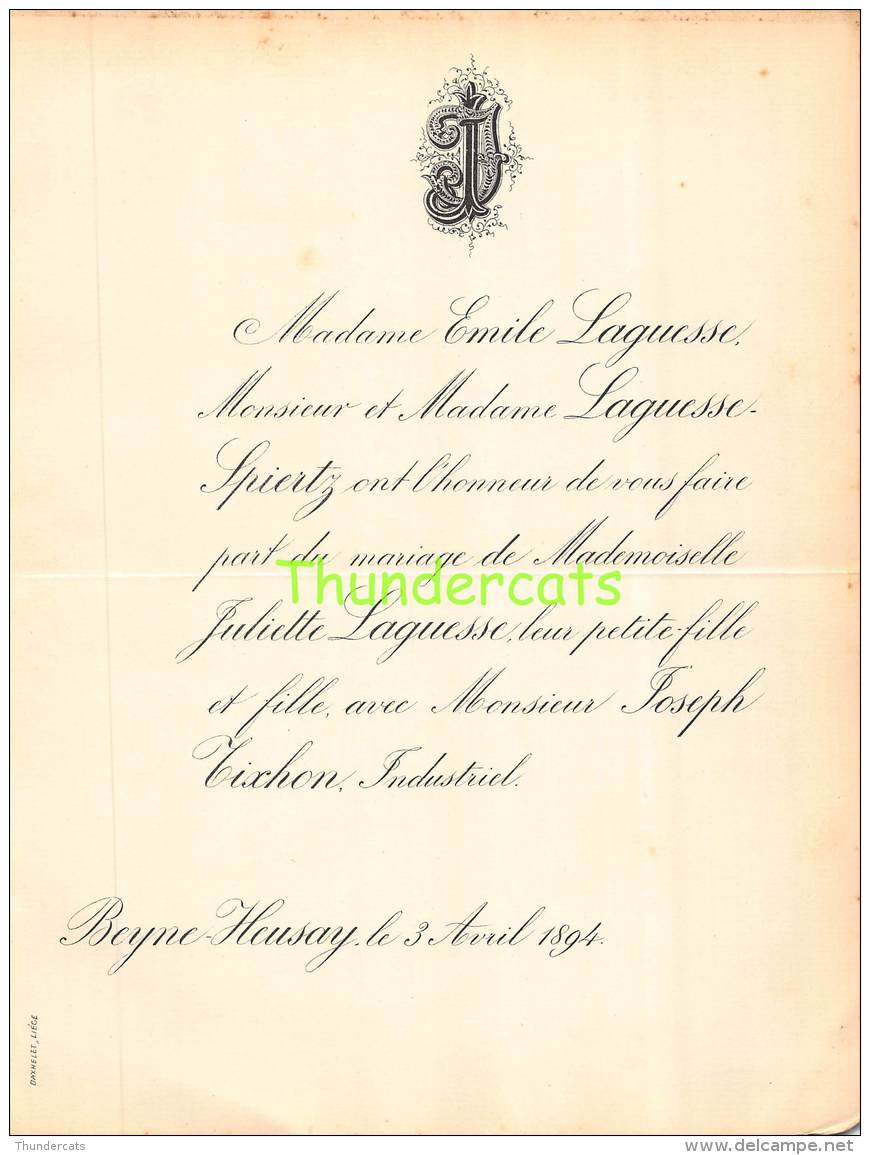 Madame Emile Laguesse,
Monsieur et Madame Laguesse-
Spiertz ont l'honneur de vous faire
part du mariage de Mademoiselle
Thundercats
Juliette Laguesse, leur petite-fille
et fille, avec Monsieur Joseph
Tixhon, Industriel.
Beyne-Heusay, le 3 Avril 1894.
DAXHELET, LIÉGE
Thundercats
www.delcampe.net